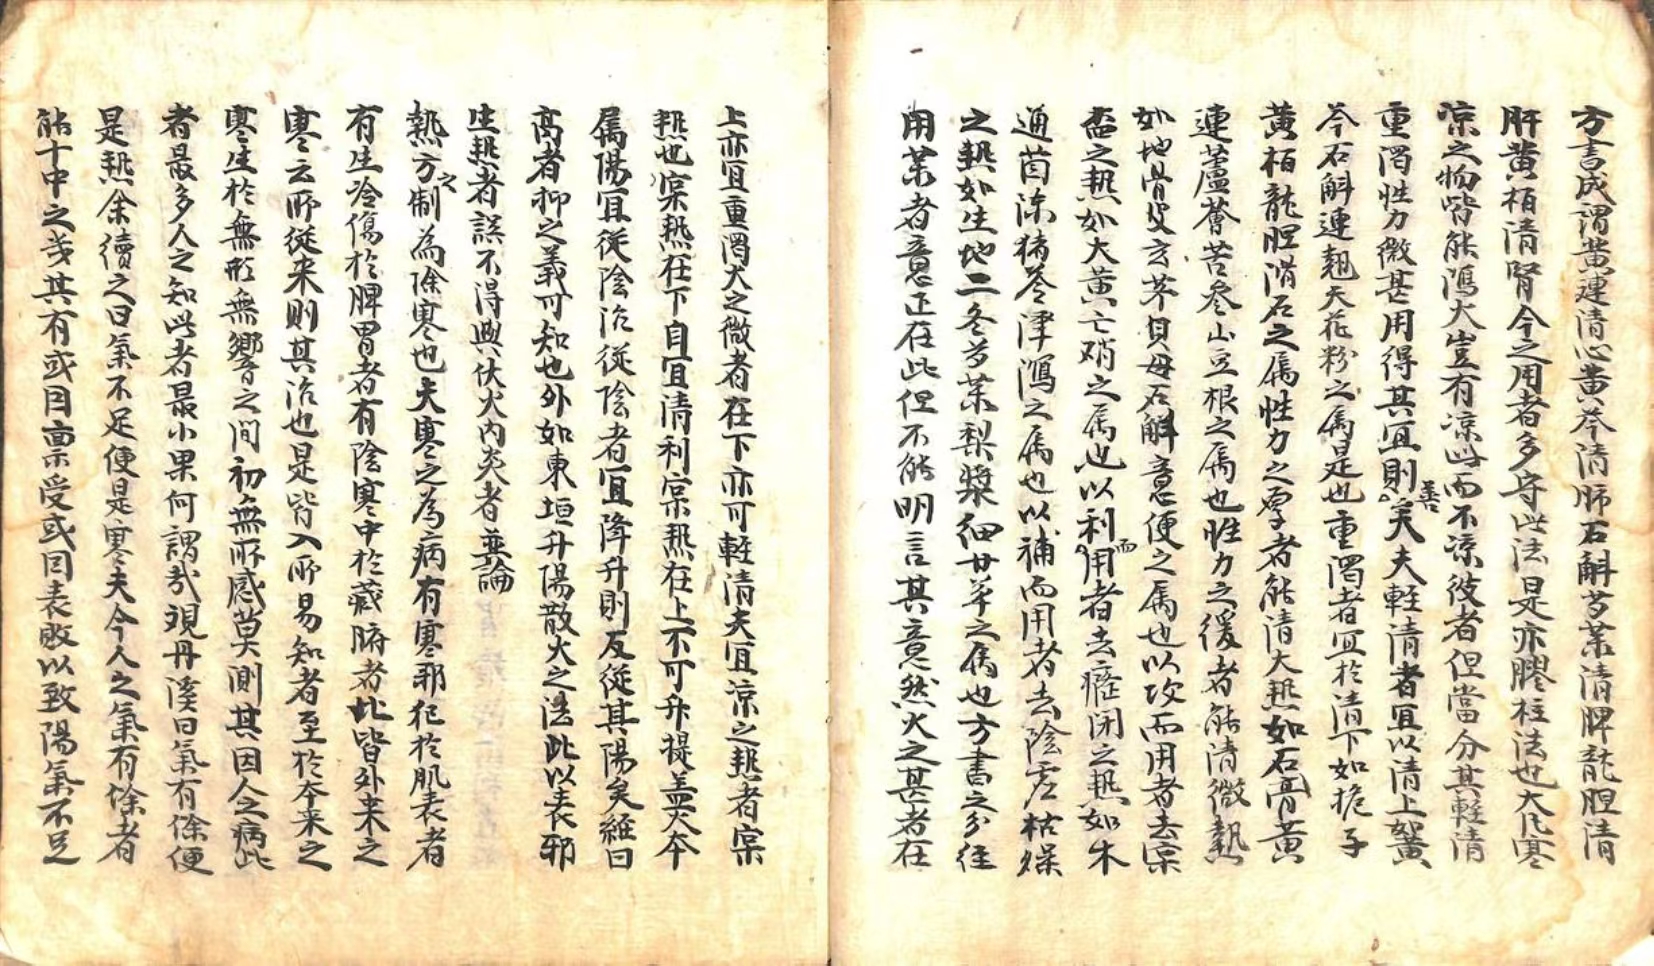 方書咸謂黃連清心黃芩清肺石斛芍藥清脾龍胆清
肝黃栢清腎今之用者多守此法是亦膠柱法也大凡寒
凉之物皆能瀉火豈有凉此而不凉彼者但當分其輕清
重濁性力微甚用得其宜則善矣夫輕清者宜以清上如黃
芩石斛連翹天花粉之属是也重濁者宜於清下如梔子
黃栢龍胆滑石之属性力之厚者能清大熱如石膏黃
連蘆薈苦参山豆根之属也性力之緩者能清微熱
如地骨皮玄参貝母石斛童便之属也以攻而用者去宲
盃之熱如大黃亡硝之属也以利而用者去癃閉之熱如木
通茵陳猪苓澤瀉之属也以補而用者去陰虛枯燥
之熱如生地二冬芍藥梨漿細甘草之属也方書之分経
用藥者意正在此但不能明言其意然火之甚者在
上亦宜重濁火之微者在下亦可輕清夫宜凉之熱者宲
熱也宲熱在下自宜清利宲熱在上不可升提盖火本
属陽宜従陰治従陰者宜降升則反従其陽矣経曰
高者抑之義可知也外如東垣升陽散火之法此以表邪
生熱者設不得與伏火内炎者並論
熱方之制為除寒也夫寒之為病有寒邪犯於肌表者
有生冷傷於脾胃者有陰寒中於藏腑者此皆外来之
寒云所従来則其治也是皆入所易知者至於本来之
寒生於無形無響之間初無所感莫測其因人之病此
者最多人之知此者最小果何謂哉覌丹溪曰氣有餘便
是熱余續之曰氣不足便是寒夫今人之氣有餘者
能十中之幾其有或因禀受或因表敗以致陽氣不足